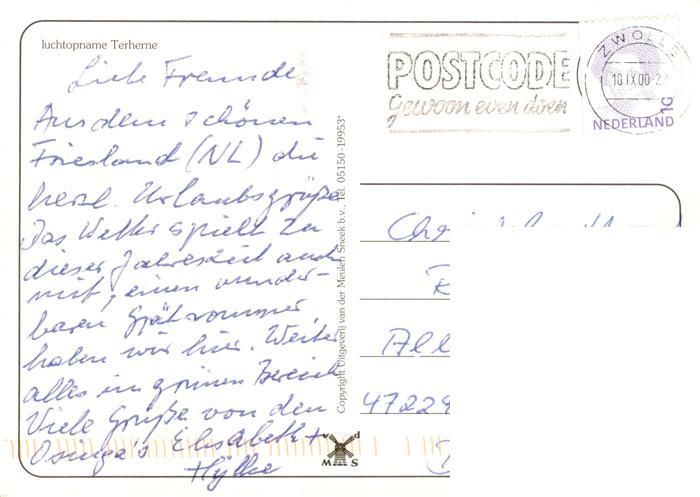 luchtopname Terherne
Liebe Freunde
Aus dem schönen
Friesland (NL) die
herzl. Urlaubsgrüße
Das Wetter spielt zu
dieser Jahreszeit auch
mit, einen wunder-
baren Spätsommer
haben wir hier. Weiter
alles im grünen Bereich
Viele Grüße von den
Osinga's Elisabeth +
Hylke
Copyright Uitgeverij van der Meulen Sneek b.v., Tel. 05150-19953*
v d
M S
POSTCODE
Gewoon even doen
ZWOLLE
10 IX 00
NEDERLAND
Chr
R
All
47229